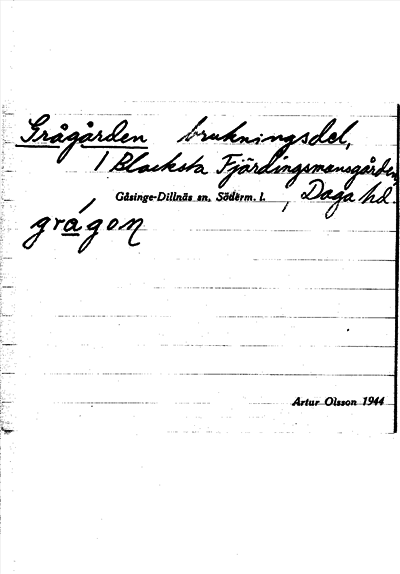 Grågården brukningsdel,
/ Blacksta Fjärdingsmansgården,
Gåsinge-Dillnäs sn. Söderm. l. , Daga hd.
grágon
Artur Olsson 1944